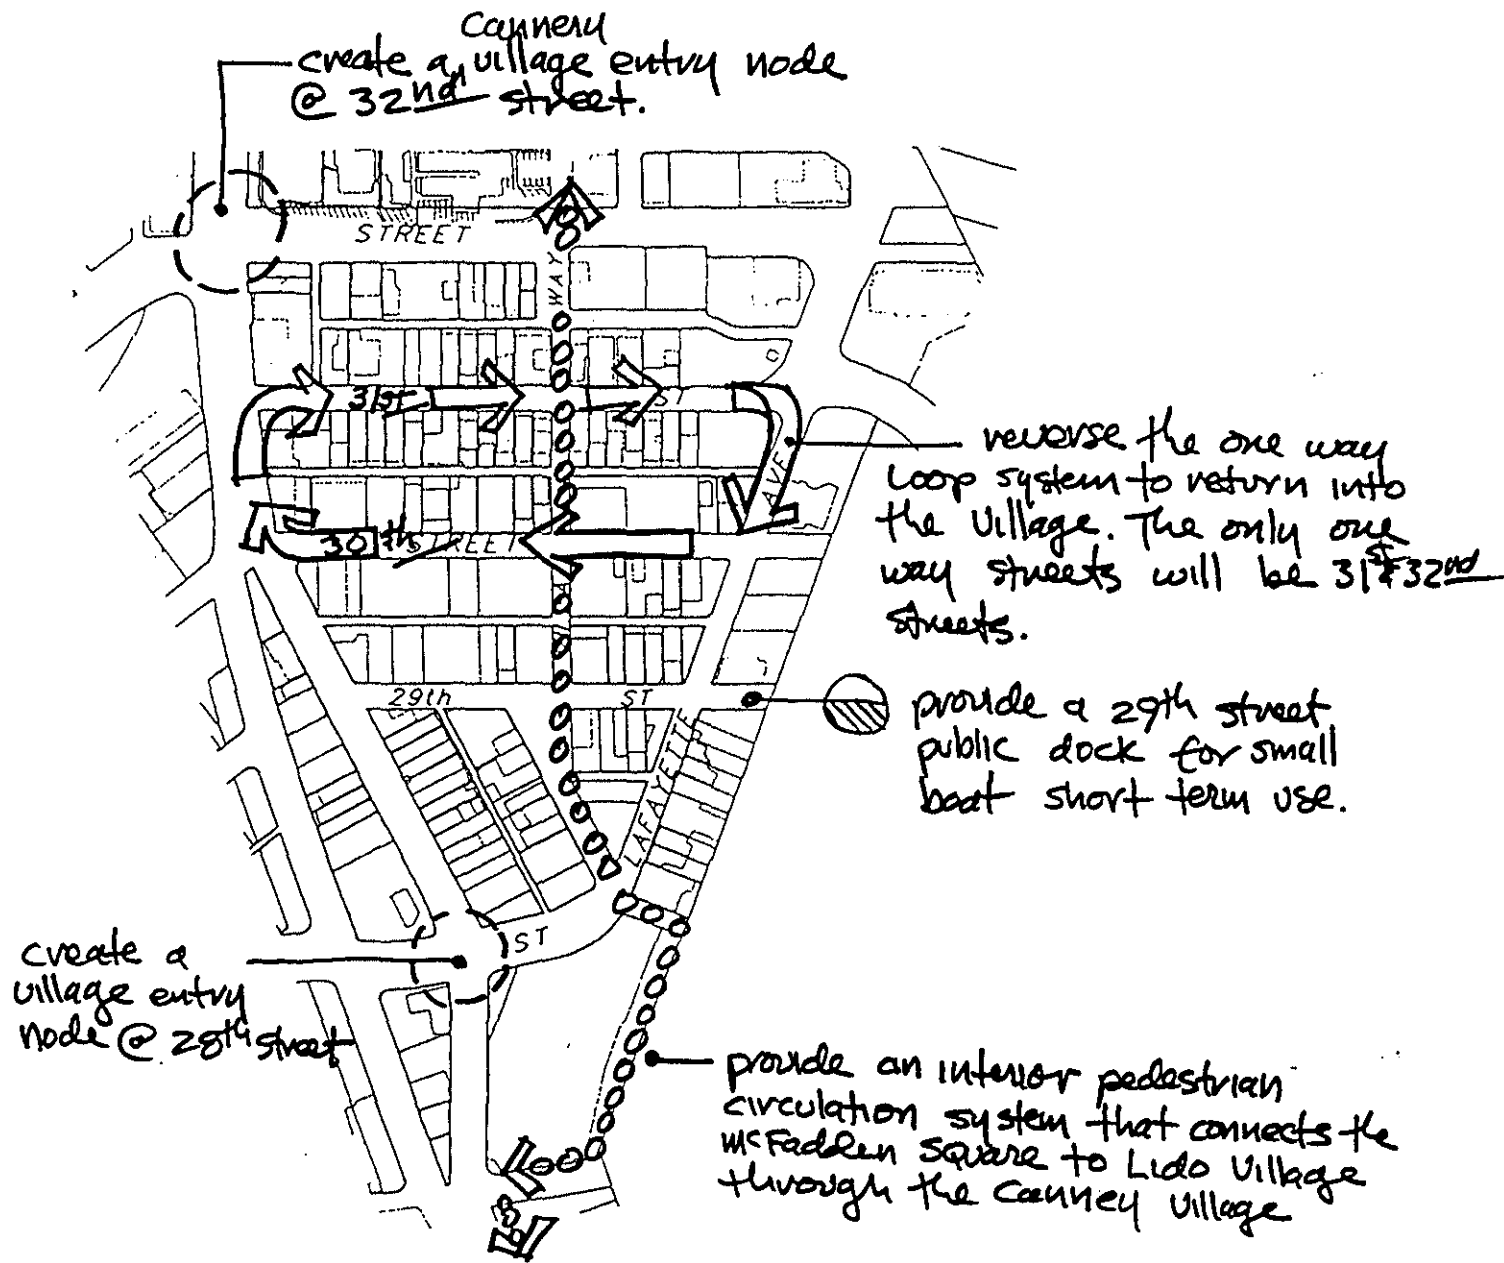 Cannery
create a village entry node
@ 32nd street.
STREET
WAY
31st
ST
reverse the one way
loop system to return into
the village. The only one
way streets will be 31st & 32nd
streets.
AVE
30th STREET
29th ST
provide a 29th street
public dock for small
boat short term use.
LAFAYETTE
ST
create a
village entry
node @ 28th street
provide an interior pedestrian
circulation system that connects the
McFadden Square to Lido Village
through the Canney Village